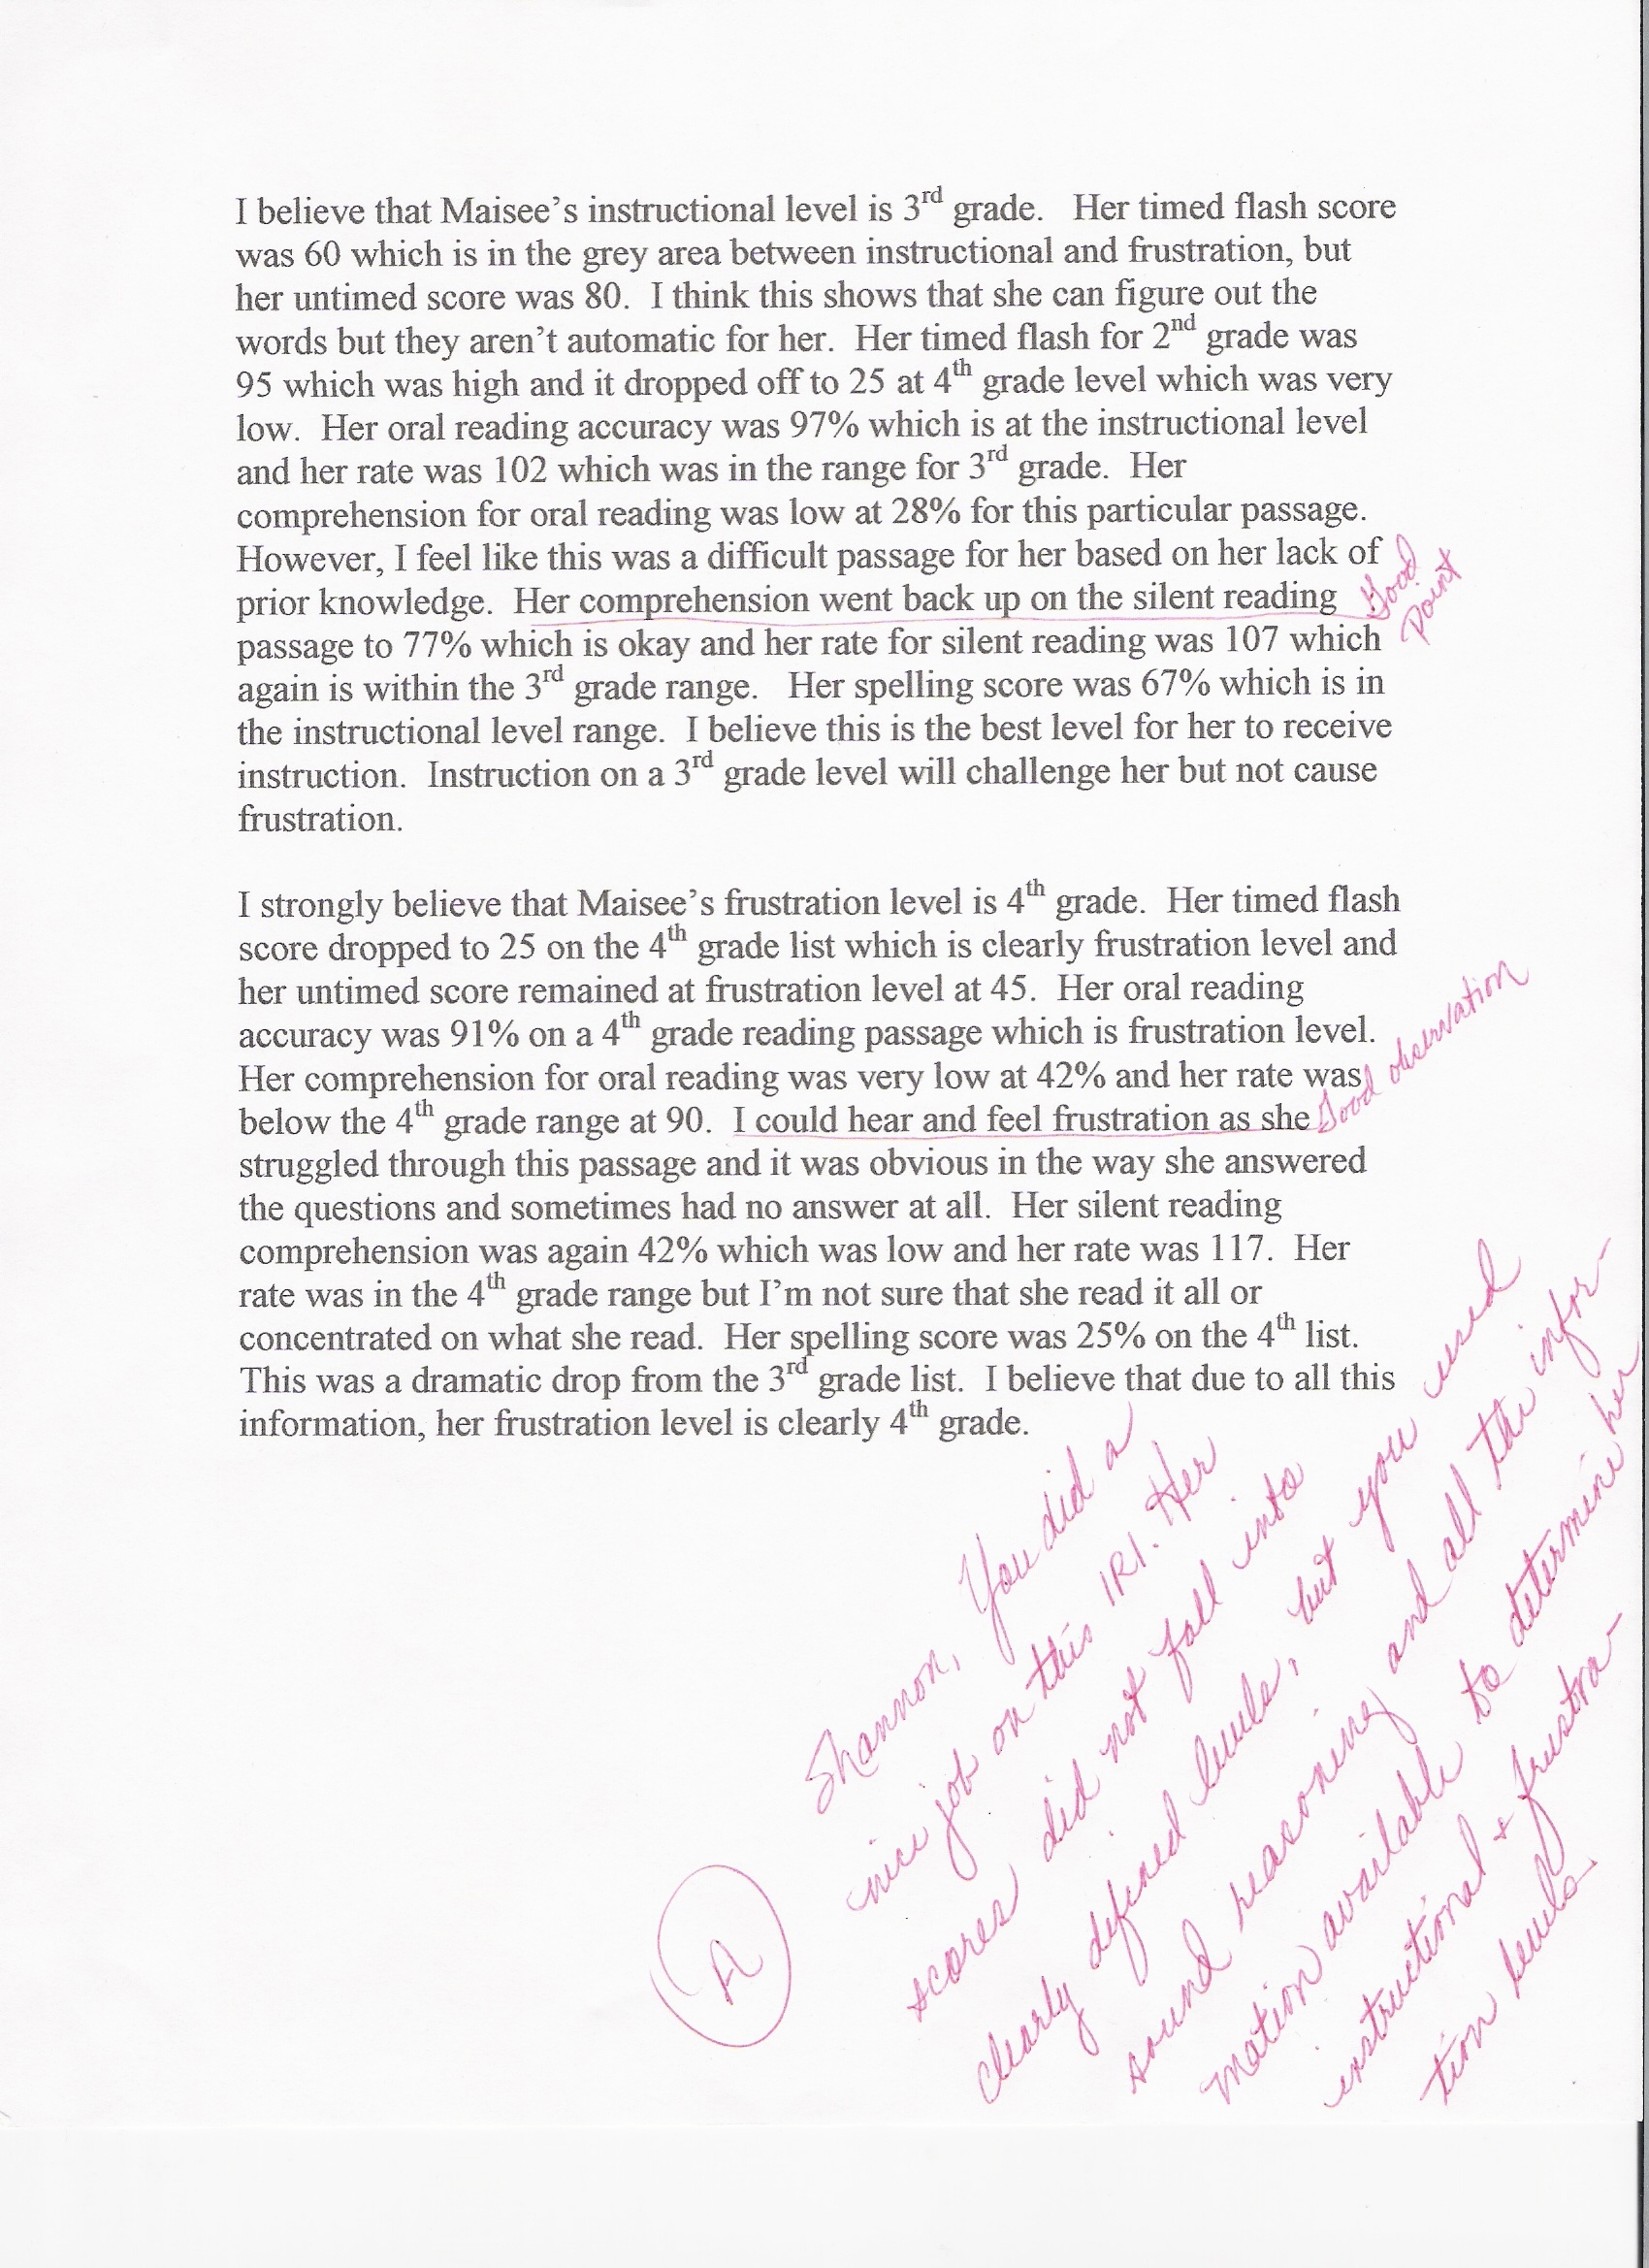 I believe that Maisee’s instructional level is 3rd grade.   Her timed flash score
was 60 which is in the grey area between instructional and frustration, but
her untimed score was 80.  I think this shows that she can figure out the
words but they aren’t automatic for her.  Her timed flash for 2nd grade was
95 which was high and it dropped off to 25 at 4th grade level which was very
low.  Her oral reading accuracy was 97% which is at the instructional level
and her rate was 102 which was in the range for 3rd grade.  Her
comprehension for oral reading was low at 28% for this particular passage.
However, I feel like this was a difficult passage for her based on her lack of
prior knowledge.  Her comprehension went back up on the silent reading
Good
point
passage to 77% which is okay and her rate for silent reading was 107 which
again is within the 3rd grade range.   Her spelling score was 67% which is in
the instructional level range.  I believe this is the best level for her to receive
instruction.  Instruction on a 3rd grade level will challenge her but not cause
frustration.
I strongly believe that Maisee’s frustration level is 4th grade.  Her timed flash
score dropped to 25 on the 4th grade list which is clearly frustration level and
her untimed score remained at frustration level at 45.  Her oral reading
accuracy was 91% on a 4th grade reading passage which is frustration level.
Her comprehension for oral reading was very low at 42% and her rate was
below the 4th grade range at 90.  I could hear and feel frustration as she
Good observation
struggled through this passage and it was obvious in the way she answered
the questions and sometimes had no answer at all.  Her silent reading
comprehension was again 42% which was low and her rate was 117.  Her
rate was in the 4th grade range but I’m not sure that she read it all or
concentrated on what she read.  Her spelling score was 25% on the 4th list.
This was a dramatic drop from the 3rd grade list.  I believe that due to all this
information, her frustration level is clearly 4th grade.
Shannon, You did a
nice job on this IRI. Her
scores did not fall into
clearly defined levels, but you used
sound reasoning and all the infor-
mation available to determine her
instructional + frustra-
tion levels.
A